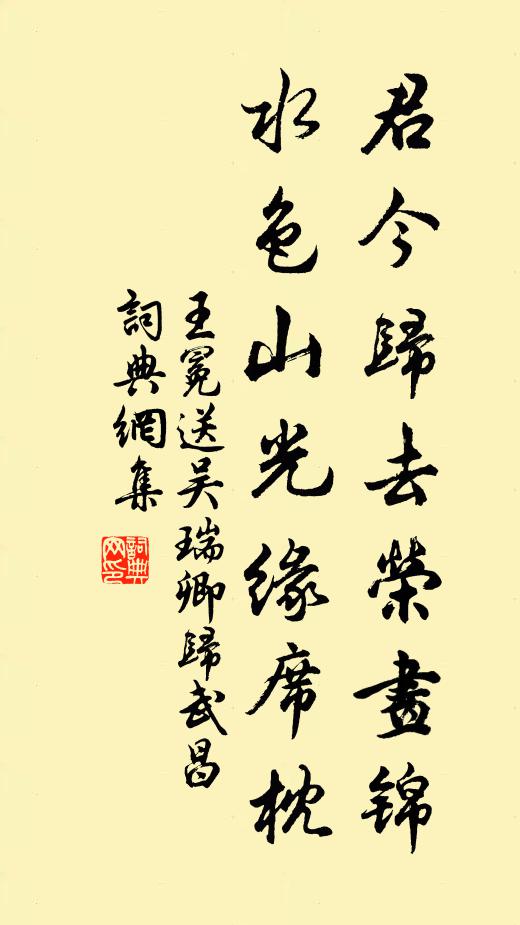 君今歸去榮晝錦
水色山光緣席枕
王冕送吴瑞卿歸武昌
詞典網集
詞典网印